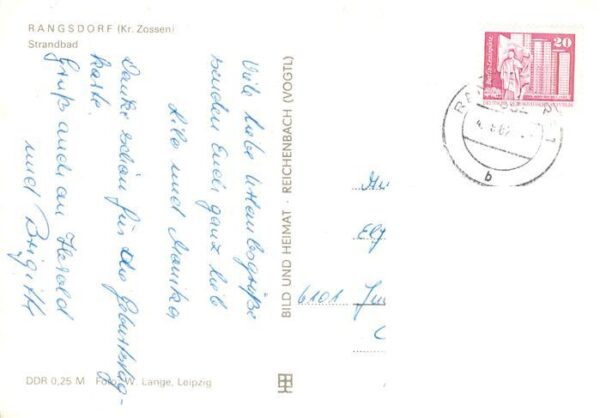 RANGSDORF (Kr. Zossen)
Strandbad
Viele liebe Urlaubsgrüße
senden Euch ganz lieb
und Monika
Danke schön für die Geburtstag-
karte.
Gruß auch an Harald
und Brigitte
BILD UND HEIMAT · REICHENBACH (VOGTL)
20
DEUTSCHE DEMOKRATISCHE REPUBLIK
b
6101
DDR 0,25 M Foto: W. Lange, Leipzig